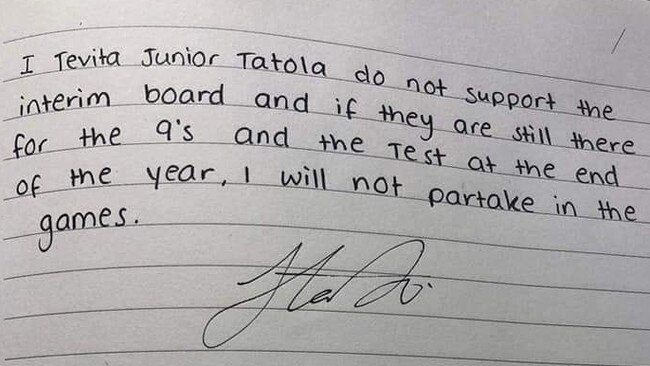 I Tevita Junior Tatola do not support the
interim board and if they are still there
for the 9's and the Test at the end
of the year, I will not partake in the
games.